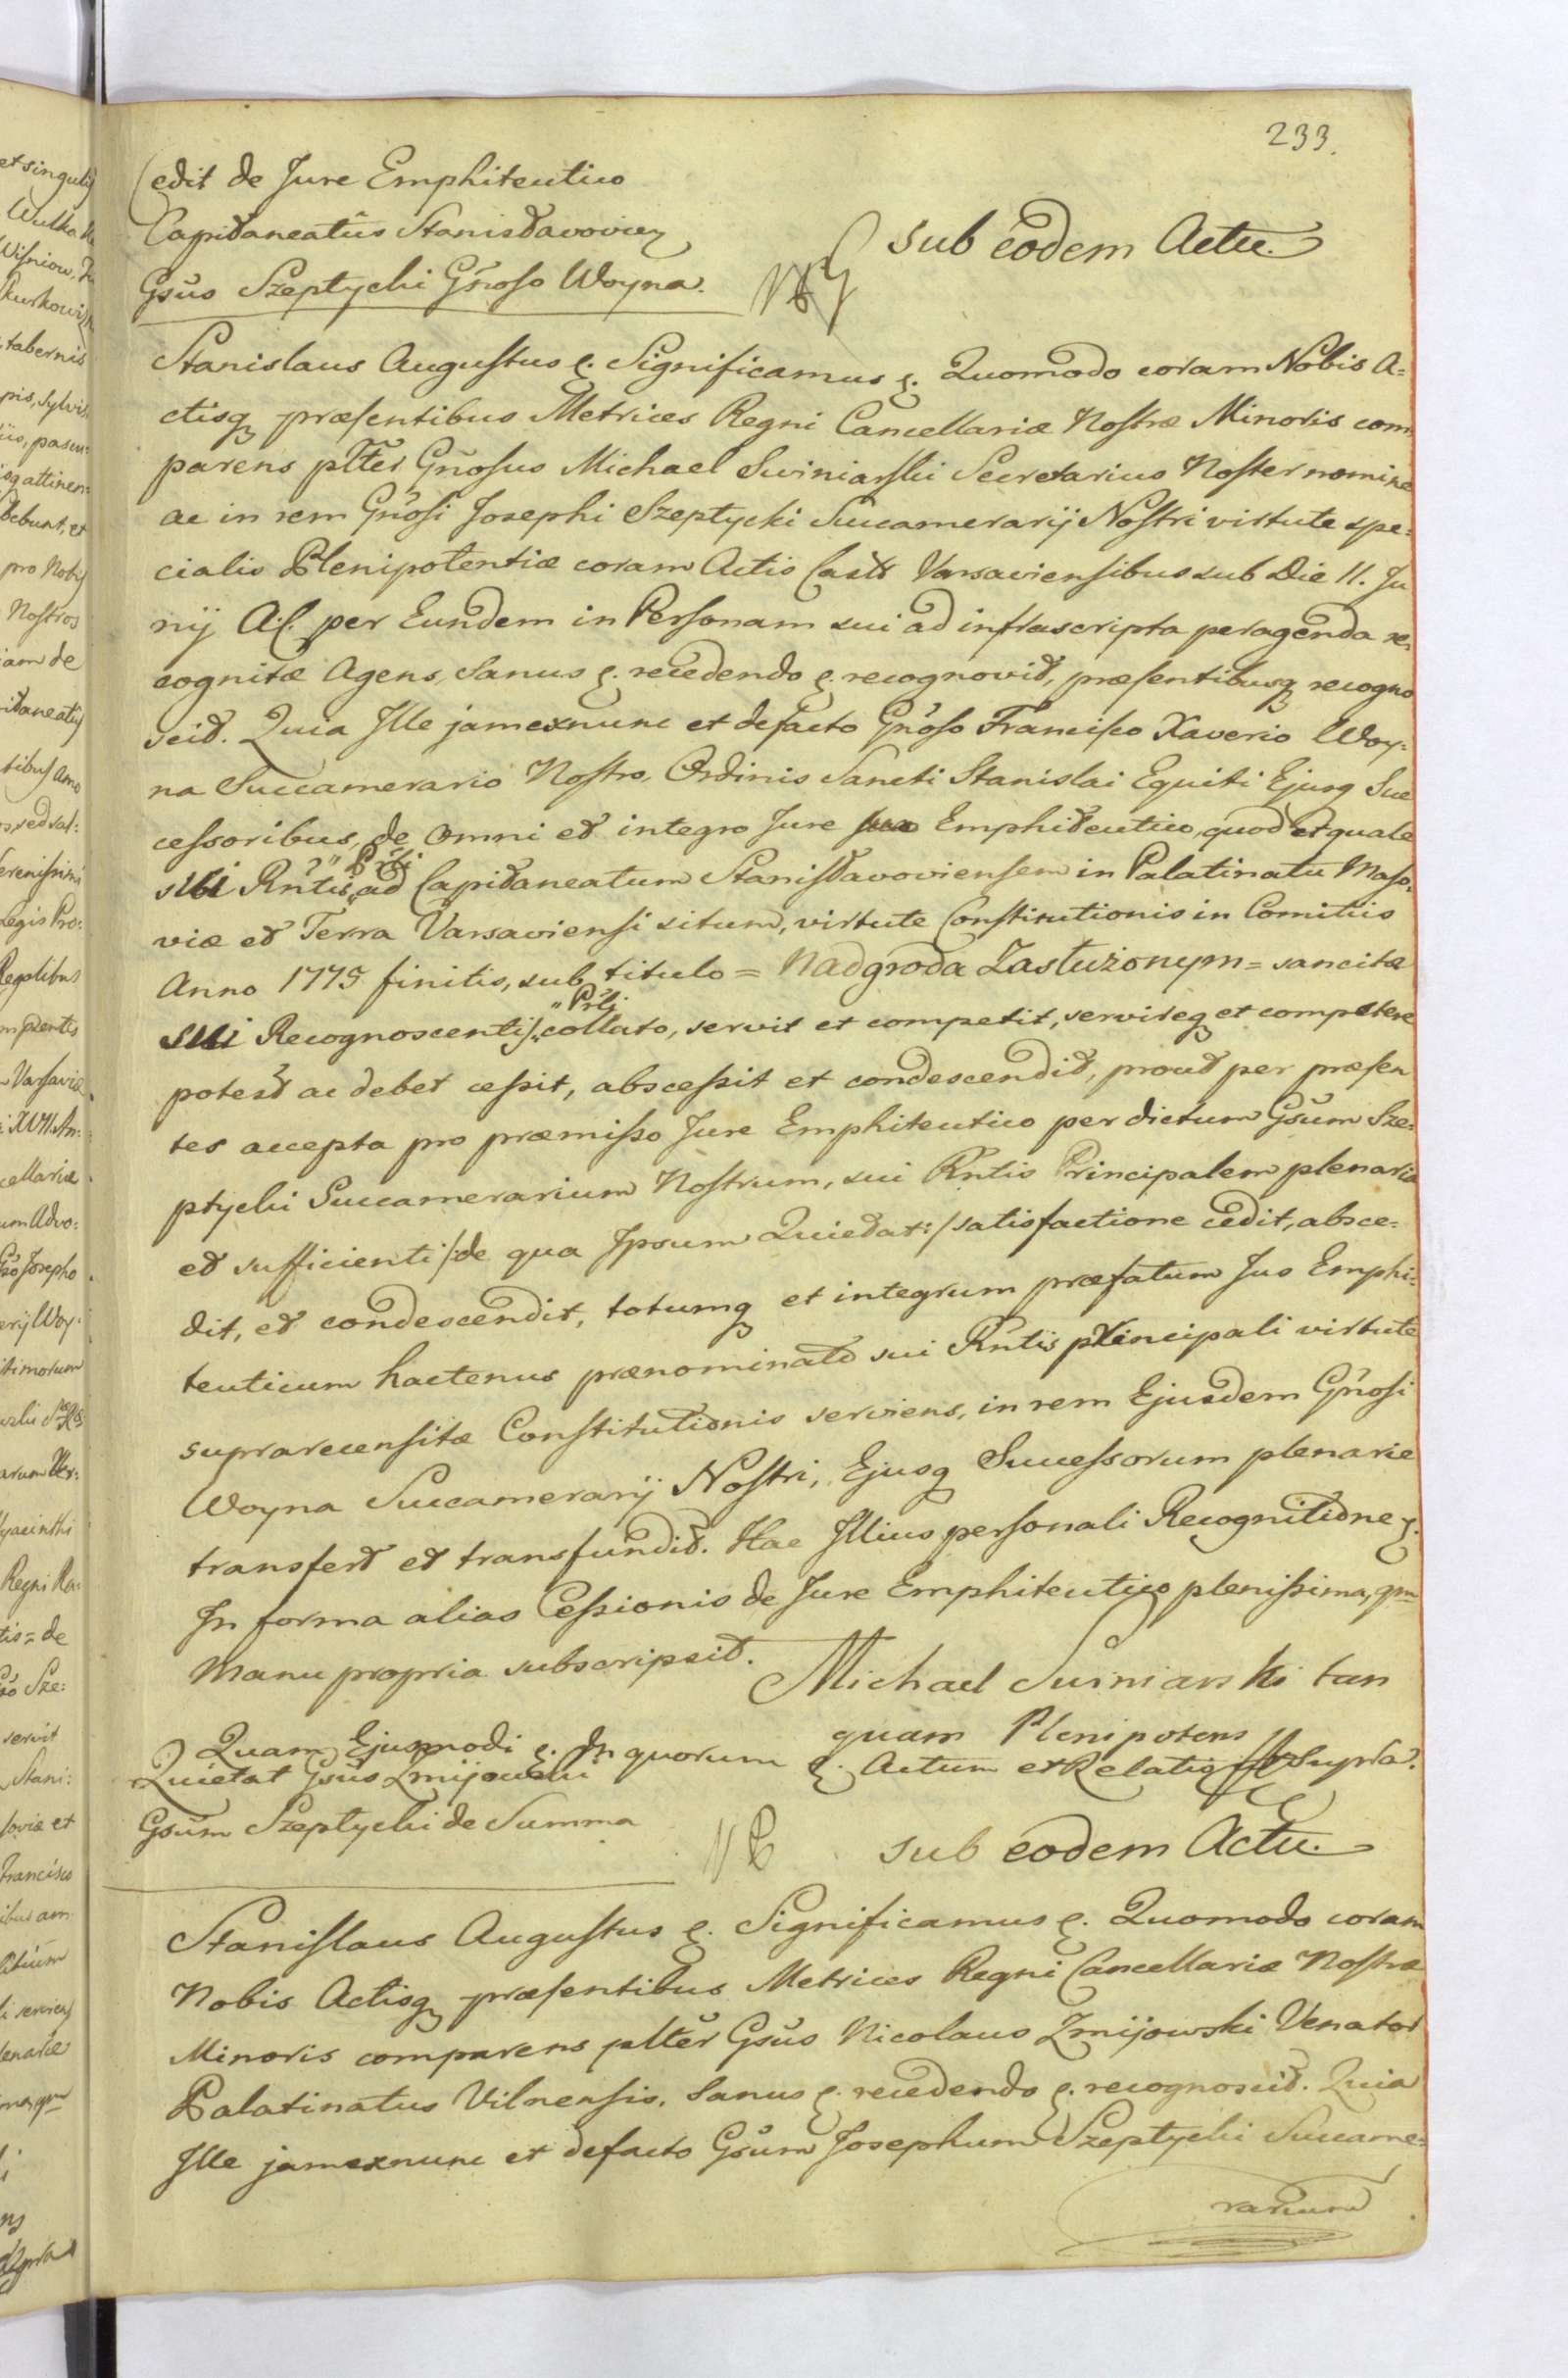 233.
Cedit de Jure Emphiteutico
Capitaneatûs Stanisławowiey
Gsūs Szeptycki Gnōso Woyna.
Sub eodem Actu.
Stanislaus Augustus ę. Significamus ę. Quomodo coram Nobis A=
ctisq præsentibus Metrices Regni Cancellariæ Nostræ Minoris com
parens plter Gnosus Michael Swiniarski Secretarius Noster nomine
ac in rem Gnosi Josephi Szeptycki Succamerarij Nostri virtute spe=
cialis Plenipotentiæ coram Actis Castr Varsaviensibus sub Die 11. Ju
nij A.C. per Eundem in Personam sui ad infrascripta peragenda re=
cognitæ Agens, Sanus ę. recedendo ę. recognovit, præsentibusq recogno
scit. Quia Ille jamexnunc et defacto Gnoso Francisco Xaverio Woy=
na Succamerario Nostro, Ordinis Sancti Stanislai Equiti Ejusq Suc
cessoribus, de omni et integro Jure suo Emphiteutico, quod et quale
sui Rntis "Prli ad Capitaneatum Stanisławoviensem in Palatinatu Maso=
viæ et Terra Varsaviensi situm, virtute Constitutionis in Comitiis
Anno 1775 finitis, sub titulo = Nadgroda Zasłużonym = sancitæ
sui Recognoscentis "Prli collato, servit et competit, serviteq et competere
potest ac debet cessit, abscessit et condescendit, prout per præsen
tes accepta pro præmisso Jure Emphiteutico per dictum Gsum Sze=
ptycki Succamerarium Nostrum, sui Rntis Principalem plenaria
et sufficienti /:de qua Ipsum Quietat:/ satisfactione cedit, absce=
dit, et condescendit, totumq et integrum præfatum Jus Emphi=
teuticum hactenus prænominato sui Rntis principali virtute
suprarecensitæ Constitutionis serviens, in rem Ejusdem Gnosi
Woyna Succamerarij Nostri, Ejusq Successorum plenarie
transfert et transfundit. Hac Illius personali Recognitione ę.
In forma alias Cessionis de Jure Emphiteutico plenissima, qm
Manu propria subscripsit.
Michael Swiniarski tan
quam Plenipotens
Quam Ejusmodi ę. In quorum ę. Actum et Relatig ut Supra.
Quietat Gsūs Zmijowski
Gsūm Szeptycki de Summa
Sub eodem Actu.
Stanislaus Augustus ę. Significamus ę. Quomodo coram
Nobis Actisq præsentibus Metrices Regni Cancellariæ Nostræ
Minoris comparens plter Gsūs Nicolaus Zmijowski Venator
Palatinatus Vilnensis. Sanus ę. recedendo ę. recognoscit. Quia
Ille jamexnunc et defacto Gsūm Josephum Szeptycki Succame=
rarium